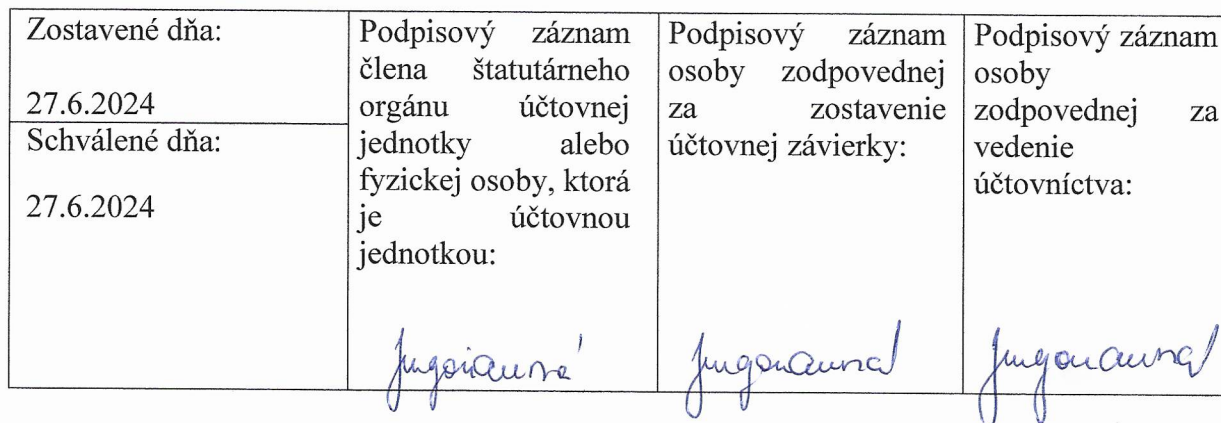 Zostavené dňa:
27.6.2024
Schválené dňa:
27.6.2024
Podpisový záznam
člena štatutárneho
orgánu účtovnej
jednotky alebo
fyzickej osoby, ktorá
je účtovnou
jednotkou:
Podpisový záznam
osoby zodpovednej
za zostavenie
účtovnej závierky:
Podpisový záznam
osoby
zodpovednej za
vedenie
účtovníctva: